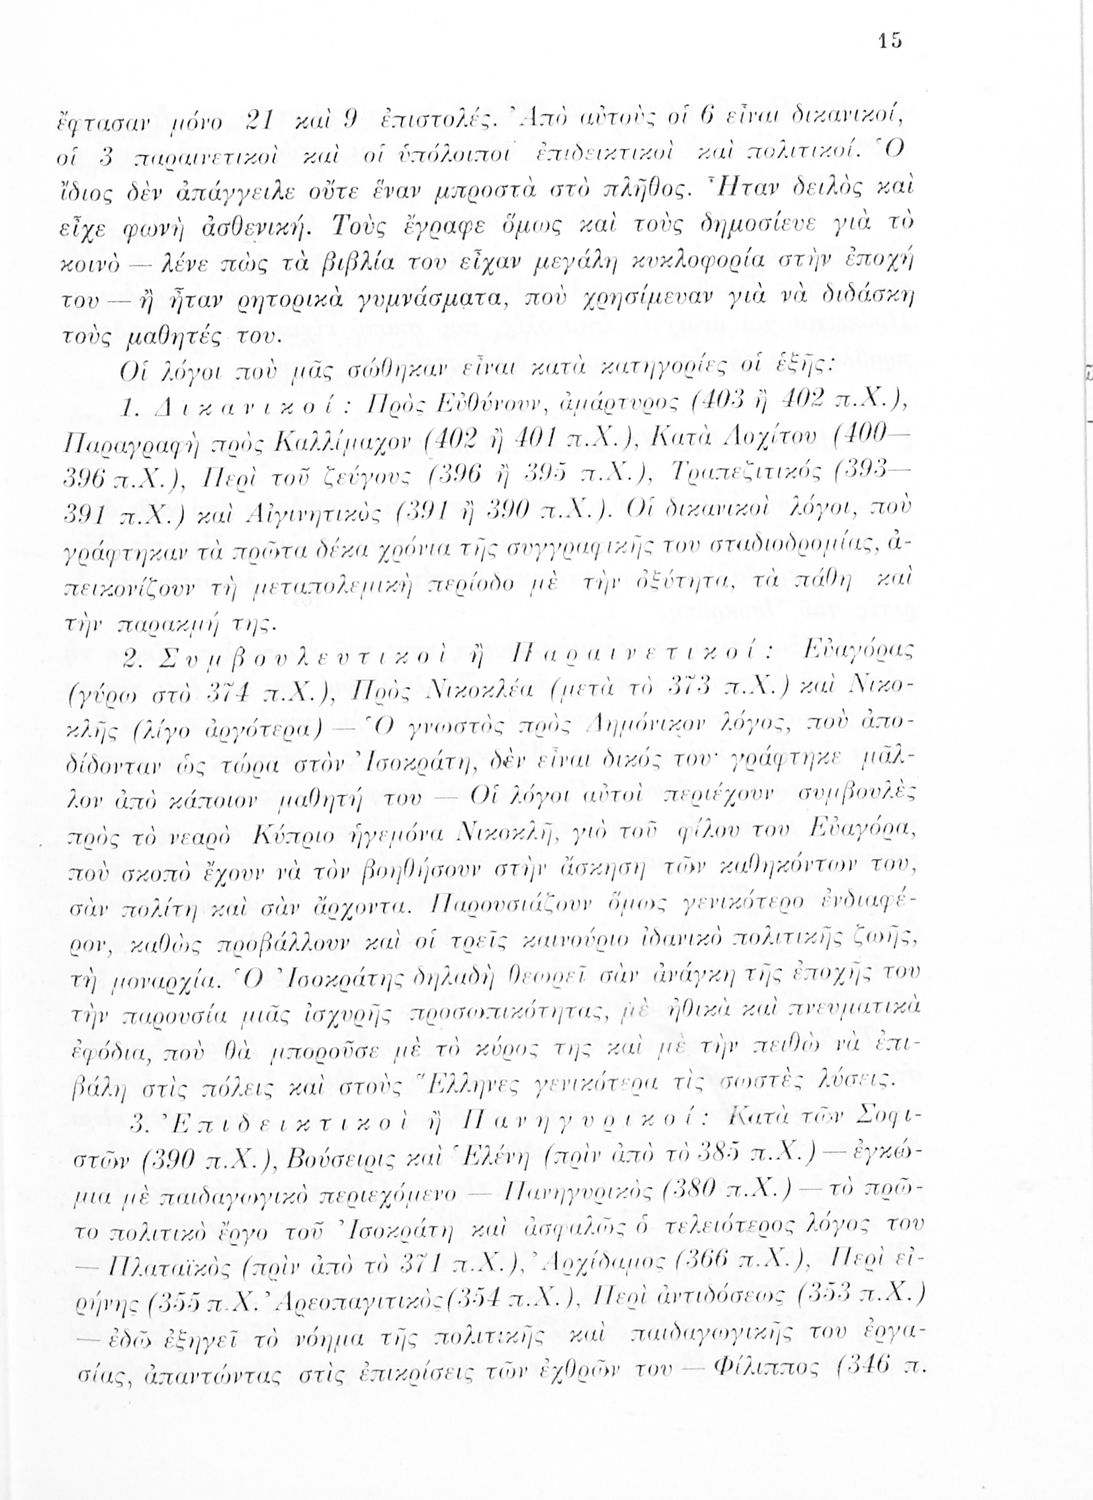 15
ἔφτασαν μόνο 21 καὶ 9 ἐπιστολές. Ἀπὸ αὐτοὺς οἱ 6 εἶναι δικανικοί,
οἱ 3 παραινετικοὶ καὶ οἱ ὑπόλοιποι ἐπιδεικτικοὶ καὶ πολιτικοί. Ὁ
ἴδιος δὲν ἀπάγγειλε οὔτε ἕναν μπροστὰ στὸ πλῆθος. Ἦταν δειλὸς καὶ
εἶχε φωνὴ ἀσθενική. Τοὺς ἔγραφε ὅμως καὶ τοὺς δημοσίευε γιὰ τὸ
κοινὸ — λένε πὼς τὰ βιβλία του εἶχαν μεγάλη κυκλοφορία στὴν ἐποχή
του — ἢ ἦταν ρητορικὰ γυμνάσματα, ποὺ χρησίμευαν γιὰ νὰ διδάσκη
τοὺς μαθητές του.
Οἱ λόγοι ποὺ μᾶς σώθηκαν εἶναι κατὰ κατηγορίες οἱ ἑξῆς:
1. Δικανικοί: Πρὸς Εὐθύνουν, ἀμάρτυρος (403 ἢ 402 π.Χ.),
Παραγραφὴ πρὸς Καλλίμαχον (402 ἢ 401 π.Χ.), Κατὰ Λοχίτου (400—
396 π.Χ.), Περὶ τοῦ ζεύγους (396 ἢ 395 π.Χ.), Τραπεζιτικός (393—
391 π.Χ.) καὶ Αἰγινητικὸς (391 ἢ 390 π.Χ.). Οἱ δικανικοὶ λόγοι, ποὺ
γράφτηκαν τὰ πρῶτα δέκα χρόνια τῆς συγγραφικῆς του σταδιοδρομίας, ἀ-
πεικονίζουν τὴ μεταπολεμικὴ περίοδο μὲ τὴν ὀξύτητα, τὰ πάθη καὶ
τὴν παρακμή της.
2. Συμβουλευτικοὶ ἢ Παραινετικοί: Εὐαγόρας
(γύρω στὸ 374 π.Χ.), Πρὸς Νικοκλέα (μετὰ τὸ 373 π.Χ.) καὶ Νικο-
κλῆς (λίγο ἀργότερα) — Ὁ γνωστὸς πρὸς Δημόνικον λόγος, ποὺ ἀπο-
δίδονταν ὡς τώρα στὸν Ἰσοκράτη, δὲν εἶναι δικός του· γράφτηκε μᾶλ-
λον ἀπὸ κάποιον μαθητή του — Οἱ λόγοι αὐτοὶ περιέχουν συμβουλὲς
πρὸς τὸ νεαρὸ Κύπριο ἡγεμόνα Νικοκλῆ, γιὸ τοῦ φίλου του Εὐαγόρα,
ποὺ σκοπὸ ἔχουν νὰ τὸν βοηθήσουν στὴν ἄσκηση τῶν καθηκόντων του,
σὰν πολίτη καὶ σὰν ἄρχοντα. Παρουσιάζουν ὅμως γενικότερο ἐνδιαφέ-
ρον, καθὼς προβάλλουν καὶ οἱ τρεῖς καινούριο ἰδανικὸ πολιτικῆς ζωῆς,
τὴ μοναρχία. Ὁ Ἰσοκράτης δηλαδὴ θεωρεῖ σὰν ἀνάγκη τῆς ἐποχῆς του
τὴν παρουσία μιᾶς ἰσχυρῆς προσωπικότητας, μὲ ἠθικὰ καὶ πνευματικὰ
ἐφόδια, ποὺ θὰ μποροῦσε μὲ τὸ κύρος της καὶ μὲ τὴν πειθὼ νὰ ἐπι-
βάλη στὶς πόλεις καὶ στοὺς Ἕλληνες γενικότερα τὶς σωστὲς λύσεις.
3. Ἐπιδεικτικοὶ ἢ Πανηγυρικοί: Κατὰ τῶν Σοφι-
στῶν (390 π.Χ.), Βούσειρις καὶ Ἑλένη (πρὶν ἀπὸ τὸ 385 π.Χ.) — ἐγκώ-
μια μὲ παιδαγωγικὸ περιεχόμενο — Πανηγυρικὸς (380 π.Χ.) — τὸ πρῶ-
το πολιτικὸ ἔργο τοῦ Ἰσοκράτη καὶ ἀσφαλῶς ὁ τελειότερος λόγος του
— Πλαταϊκὸς (πρὶν ἀπὸ τὸ 371 π.Χ.), Ἀρχίδαμος (366 π.Χ.), Περὶ εἰ-
ρήνης (355 π.Χ. Ἀρεοπαγιτικὸς (354 π.Χ.), Περὶ ἀντιδόσεως (353 π.Χ.)
— ἐδῶ ἐξηγεῖ τὸ νόημα τῆς πολιτικῆς καὶ παιδαγωγικῆς του ἐργα-
σίας, ἀπαντώντας στὶς ἐπικρίσεις τῶν ἐχθρῶν του — Φίλιππος (346 π.